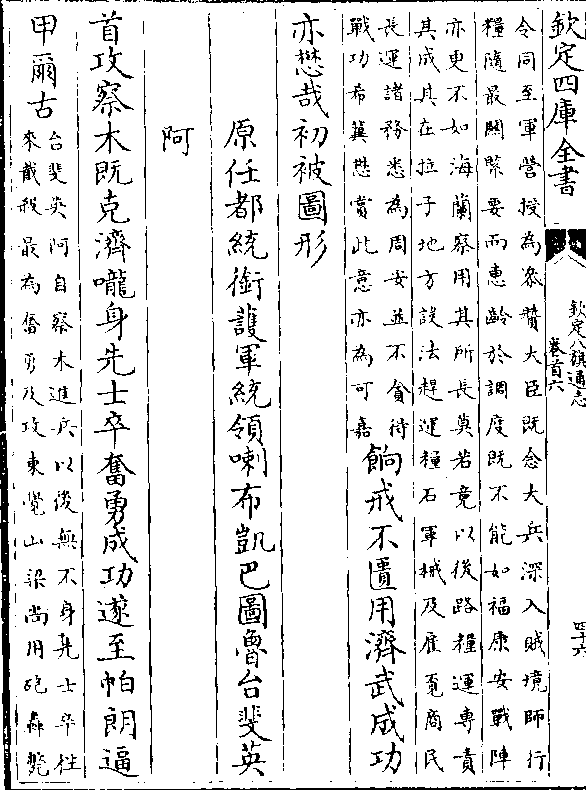 欽定四庫全書
欽定八旗通志
卷首六
四十六
令同至軍營授為叅贊大臣既念大兵深入賊境師行
糧隨最關緊要而惠齡於調度既不能如福康安戰陣
亦更不如海蘭察用其所長莫若竟以後路糧運專責
其成其在拉子地方設法趕運糧石軍械及雇覓商民
長運諸務悉為周妥並不貪待
戰功希冀懋賞此意亦為可嘉
餉戒不匱用濟武成功
亦懋哉初被圖形
原任都統銜護軍統領喇布凱巴圖魯台斐英
阿
首攻察木既克濟嚨身先士卒奮勇成功遂至帕朗逼
甲爾古
台斐英阿自察木進兵以後無不身先士卒往
來截殺最為奮勇及攻東覺山梁尚用砲轟斃